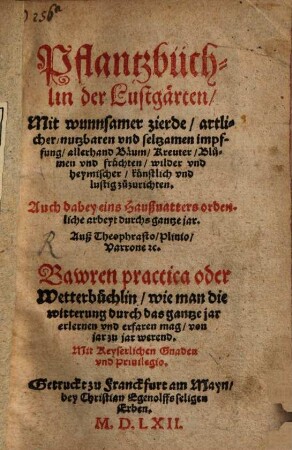 Pflantzbüch-
lin der Lustgärten/
Mit wunnsamer zierde/ artli-
cher/ nutzbaren vnd seltzamen impf-
fung/ allerhand Bäum/ Kreuter/ Blů-
men vnd früchten/ wilder vnd
heymischer/ künstlich vnd
lustig zůzurichten.
Auch dabey eins Haußuatters orden-
liche arbeyt durchs gantze jar.
Auß Theophrasto/ Plinio/
Varrone ꝛc.
R
Bawren practica oder
Wetterbüchlin/ wie man die
witterung durch das gantze jar
erlernen vnd erfaren mag/ von
jar zu jar werend.
Mit Keyserlichen Gnaden
vnd Priuilegio.
Getruckt zu Franckfurt am Mayn/
bey Christian Egenolffs seligen
Erben.
M. D. LXII.